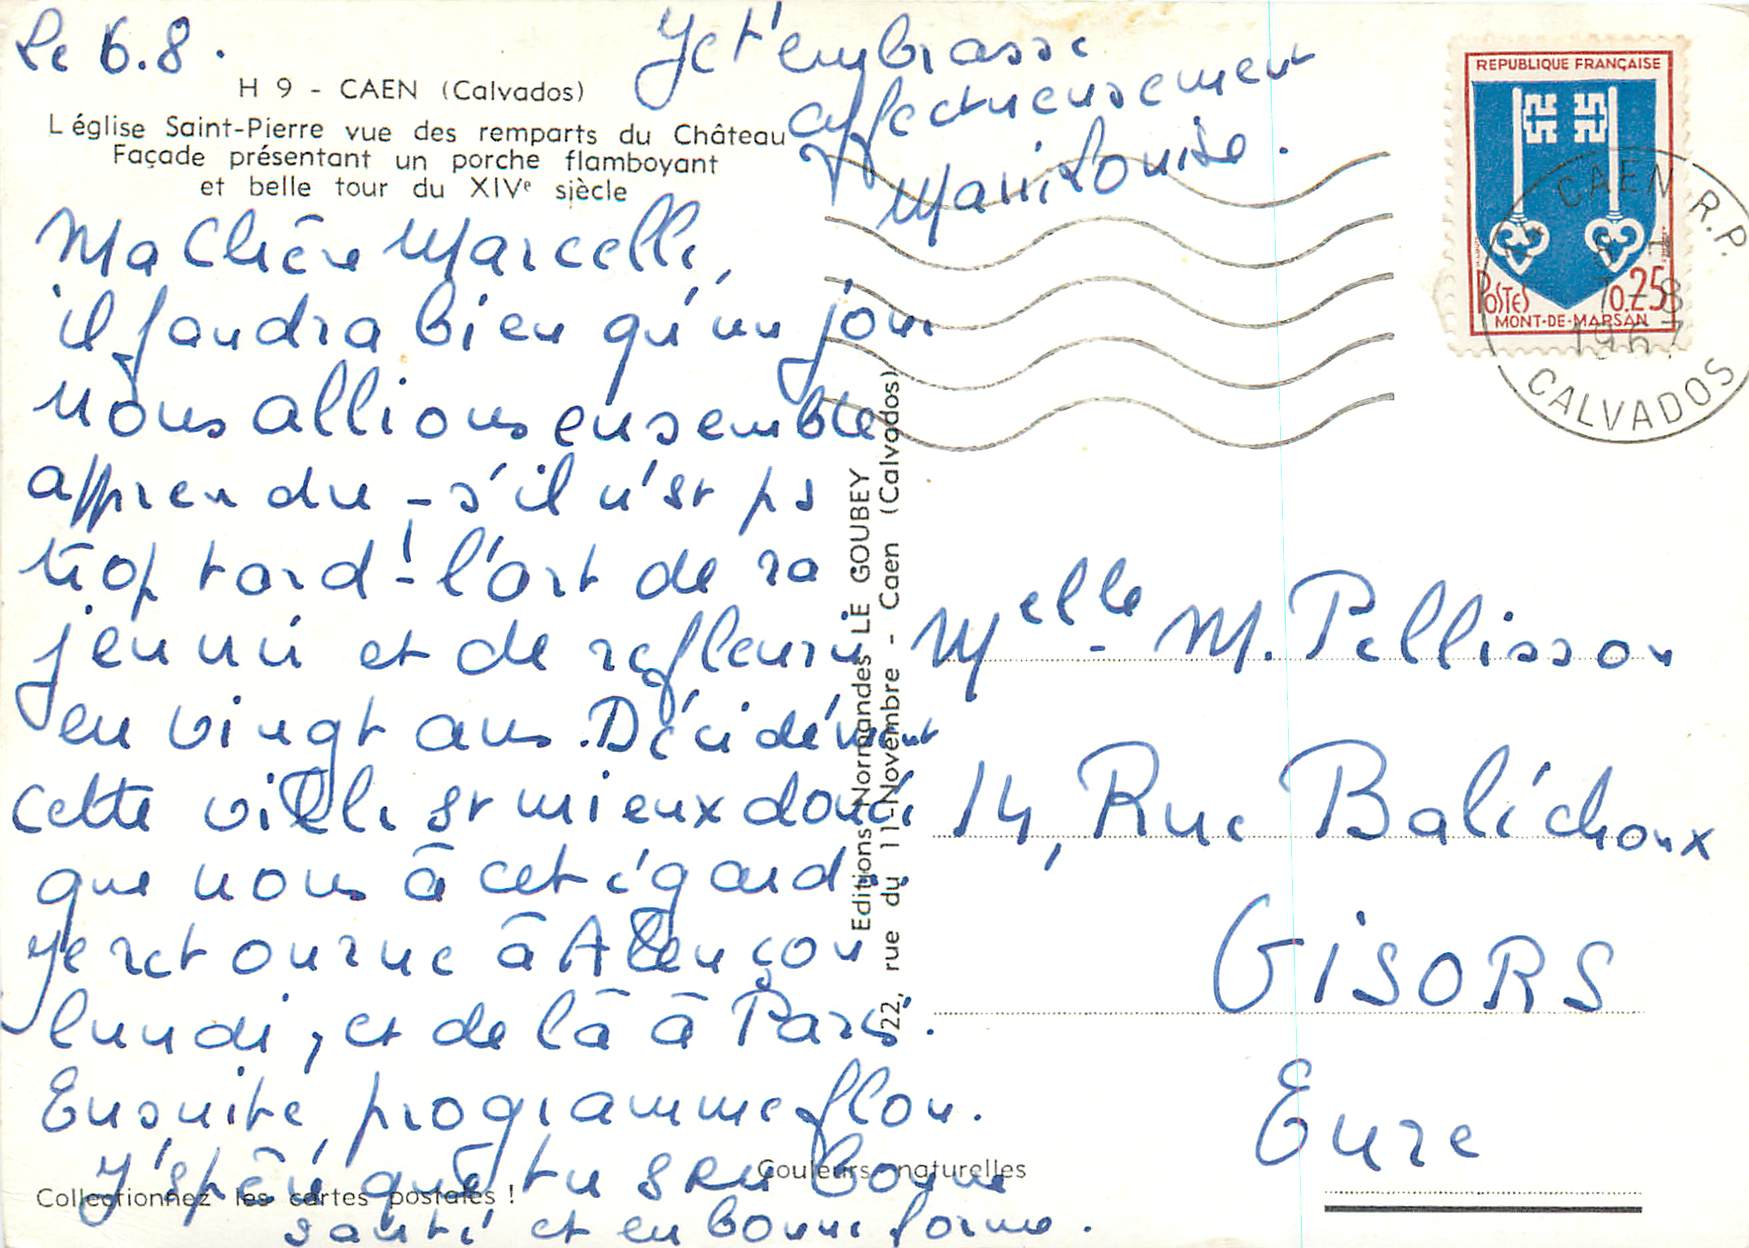 Le 6.8.
H 9 - CAEN (Calvados)
L'église Saint-Pierre vue des remparts du Château
Façade présentant un porche flamboyant
et belle tour du XIVe siècle
Ma Chère Marcelle,
il faudra bien qu'un jour
nous allions ensemble
apprendre - s'il n'est pas
trop tard! - l'art de ra
jeunir et de refleurir
en vingt ans. Décidément
cette ville est mieux douée
que nous à cet égard.
Je retourne à Alençon
lundi, et de là à Paris.
Ensuite, programme flou.
J'espère que tu es en bonne
santé et en bonne forme.
Je t'embrasse
affectueusement
Marilouise.
Collectionnez les cartes postales !
Couleurs naturelles
Editions Normandes LE GOUBEY
22, rue du 11-Novembre - Caen (Calvados)
REPUBLIQUE FRANÇAISE
POSTES
0.25
MONT-DE-MARSAN
CAEN R.P.
7-8
1967
CALVADOS
Melle M. Pellisson
14, Rue Baléchoux
GISORS
Eure